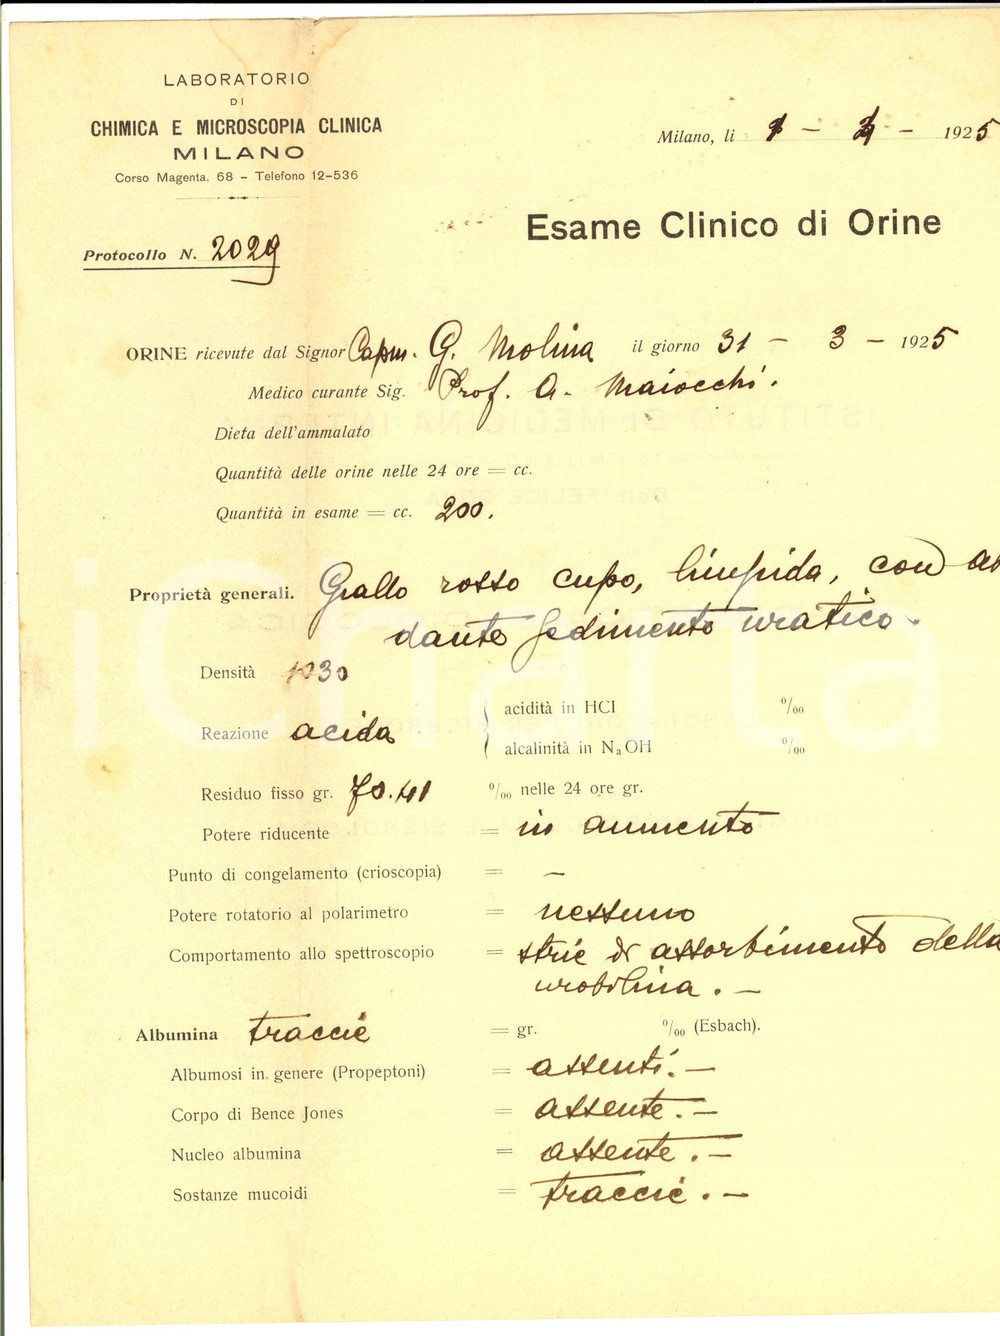 LABORATORIO
DI
CHIMICA E MICROSCOPIA CLINICA
MILANO
Corso Magenta, 68 - Telefono 12-536
Milano, li 1 - 4 - 1925
Esame Clinico di Orine
Protocollo N. 2029
ORINE ricevute dal Signor G. Molina il giorno 31 - 3 - 1925
Medico curante Sig. Prof. A. Maiocchi.
Dieta dell'ammalato
Quantità delle orine nelle 24 ore = cc.
Quantità in esame = cc. 200.
Proprietà generali. Giallo rosso cupo, limpida, con ab
dante sedimento uratico.
Densità 1030
Reazione acida { acidità in HCl ‰
alcalinità in NaOH ‰
Residuo fisso gr. 70.41 ‰ nelle 24 ore gr.
Potere riducente = in aumento
Punto di congelamento (crioscopia) = -
Potere rotatorio al polarimetro = nessuno
Comportamento allo spettroscopio = strie di assorbimento della
urobilina. -
Albumina traccie = gr. ‰ (Esbach).
Albumosi in genere (Propeptoni) = assenti. -
Corpo di Bence Jones = assente. -
Nucleo albumina = assente. -
Sostanze mucoidi = traccie. -
iCharta